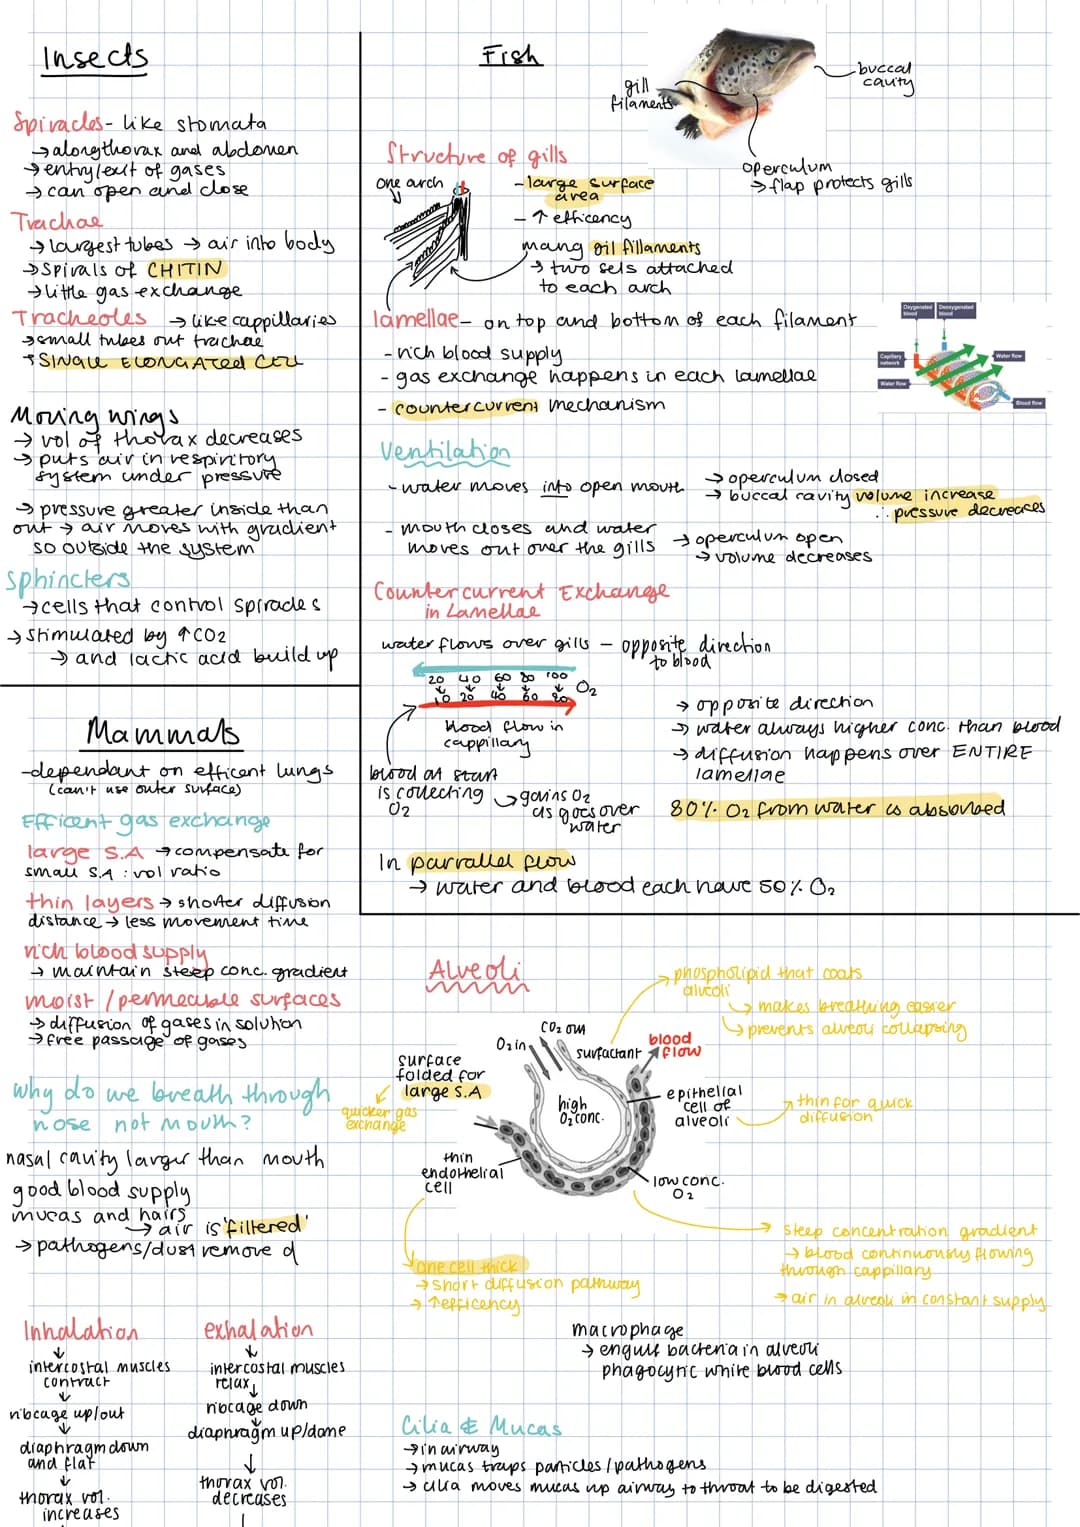 Insects
Spiracles - like stomata
→ along thorax and abdomen
→ entry/exit of gases
→ can open and close
Trachae
→ largest tubes → air into body
→ spirals of CHITIN
→ little gas exchange
Tracheoles → like cappillaries
→ small tubes out trachae
→ SINGLE ELONGATED CELL
Moving wings
→ vol of thorax decreases
→ puts air in respiritory
system under pressure
→ pressure greater inside than
out → air moves with gradient
so outside the system
Sphincters
→ cells that control spiracles
→ stimulated by ↑CO2
→ and lactic acid build up
Fish
gill
filaments
buccal
cavity
operculum
→ flap protects gills
Structure of gills
one arch
- large surface
area
- ↑ efficency
many gil fillaments
→ two sets attached
to each arch
lamellae - on top and bottom of each filament
- rich blood supply
- gas exchange happens in each lamellae
- countercurrent mechanism
Oxygenated
blood
Deoxygenated
blood
Capillary
network
Water flow
Water flow
Blood flow
Ventilation
- water moves into open mouth
→ operculum closed
→ buccal cavity volume increase
∴ pressure decreases
- mouth closes and water
moves out over the gills
→ operculum open
→ volume decreases
Countercurrent Exchange
in Lamellae
water flows over gills - opposite direction
to blood
20 40 60 80 100
10 20 40 60 80
O2
blood flow in
cappillary
blood at start
is collecting
O2
→ gains O2
as goes over
water
→ opposite direction
→ water always higher conc. than blood
→ diffusion happens over ENTIRE
lamellae
80% O2 from water is absorbed
In parrallel flow
→ water and blood each have 50% O2
Mammals
- dependant on efficent lungs
(can't use outer surface)
Efficent gas exchange
large S.A → compensate for
small S.A : vol ratio
thin layers → shorter diffusion
distance → less movement time
rich blood supply
→ maintain steep conc. gradient
moist / permeable surfaces
→ diffusion of gases in solution
→ free passage of gases
Why do we breath through
nose not mouth?
nasal cavity larger than mouth
good blood supply
mucas and hairs
→ air is 'filtered'
→ pathogens/dust removed
Inhalation
↓
intercostal muscles
contract
↓
ribcage up/out
↓
diaphragm down
and flat
↓
thorax vol.
increases
exhalation
↓
intercostal muscles
relax
↓
ribcage down
↓
diaphragm up/dome
↓
thorax vol.
decreases
Alveoli
→ phospholipid that coats
alveoli
→ makes breathing easier
→ prevents alveoli collapsing
CO2 out
O2 in
surfactant
blood
flow
surface
folded for
large S.A
quicker gas
exchange
high
O2 conc.
epithelial
cell of
alveoli
thin for quick
diffusion
thin
endothelial
cell
low conc.
O2
one cell thick
→ short diffusion pathway
→ ↑efficency
steep concentration gradient
→ blood continuously flowing
through cappillary
→ air in alveoli in constant supply
macrophage
→ engulf bacteria in alveoli
phagocytic white blood cells
Cilia & Mucas
→ in airway
→ mucas traps particles / pathogens
→ cilia moves mucas up airway to throat to be digested